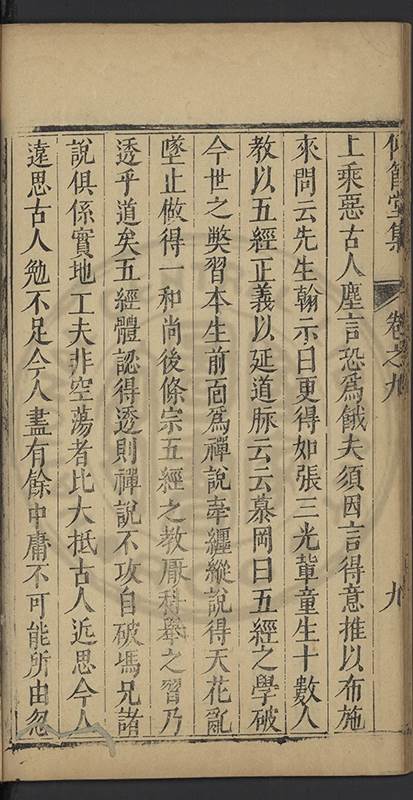 堂集 卷之九 九
上乘惡古人塵言恐爲餓夫須因言得意推以布施
來問云先生翰示曰更得如張三光軰童生十數人
教以五經正義以延道脉云云慕岡曰五經之學破
今世之獘習本生前面爲禪說牽纏縱說得天花亂
墜止做得一和尚後條宗五經之教厭科舉之習乃
透乎道矣五經體認得透則禪說不攻自破馮兄諸
說俱係實地工夫非空蕩者比大抵古人近思今人
遠思古人勉不足今人盡有餘中庸不可能所由忽